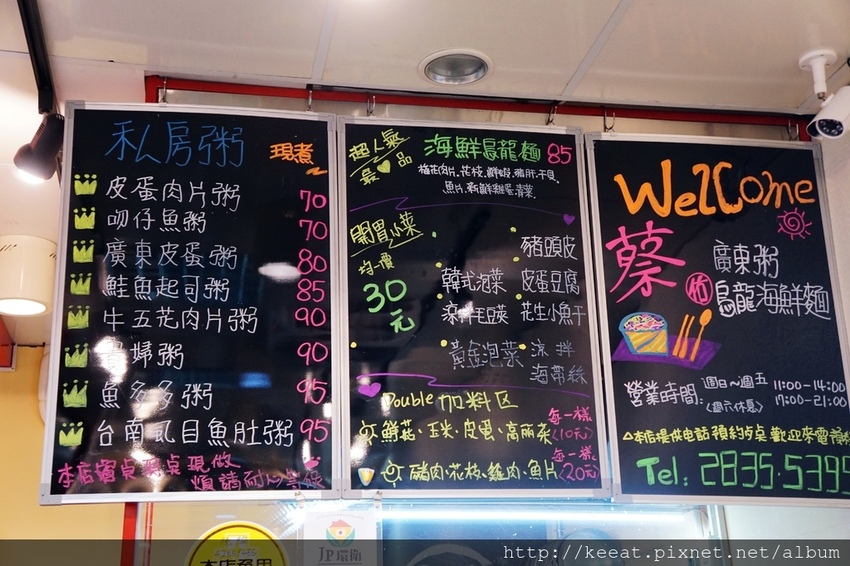 私房粥 現煮
皮蛋肉片粥 70
吻仔魚粥 70
廣東皮蛋粥 80
鮭魚起司粥 85
牛五花肉片粥 90
婦粥 90
魚多多粥 95
台南虱目魚肚粥 95
本店 桌 桌現做
煩請耐心等
超人氣
最 品
海鮮烏龍麵 85
梅花肉片、花枝、鮮蝦、豬肝、干貝
魚片、新鮮雞蛋、清菜
開胃小菜
均一價
30元
豬頭皮
韓式泡菜 皮蛋豆腐
涼拌毛豆莢 花生小魚干
黃金泡菜 涼拌海帶絲
Double 加料区
鮮菇、玉米、皮蛋、高丽菜 每一樣(10元)
豬肉、花枝、雞肉、魚片 每一樣(20元)
WelCome
蔡
廣東粥
烏龍海鮮麵
營業時間: 週日～週五 11:00-14:00
<週六休息> 17:00-21:00
△本店提供电話預約 桌歡迎來電預
Tel: 2835-5395
JP環衛
http://keeat.pixnet.net/album